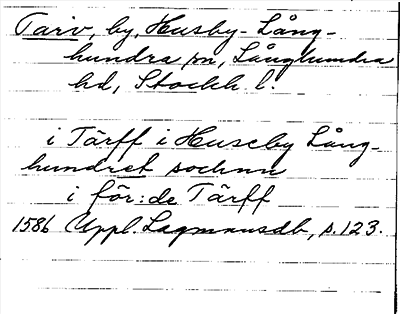 Tarv, by, Husby-Lång-
hundra sn, Långhundra
hd, Stockh l.
i Tärff i Huseby Lång-
hundret sochnn
i för:de Tärff
1586 Uppl. Lagmansdb, s. 123.